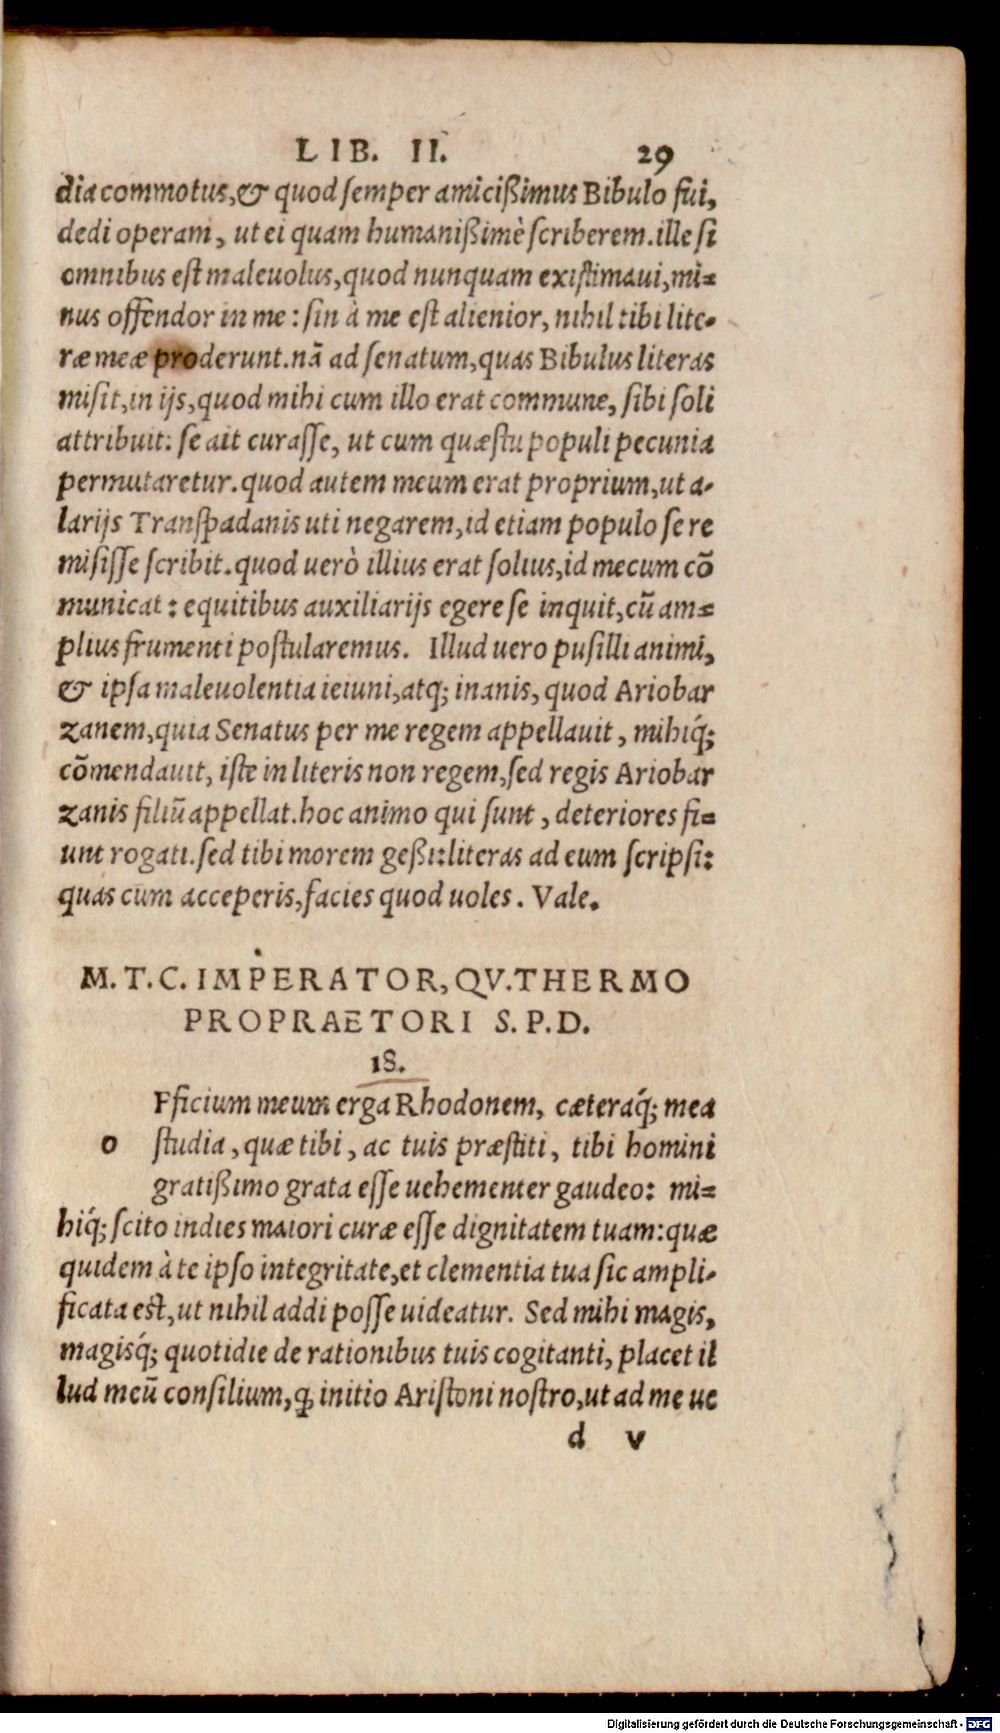 LIB. II. 29
dia commotus, & quod ſemper amicißimus Bibulo fui,
dedi operam, ut ei quam humanißimè ſcriberem. ille ſi
omnibus eſt maleuolus, quod nunquam exiſtimaui, mi=
nus offendor in me: ſin à me eſt alienior, nihil tibi lite-
ræ meæ proderunt. nā ad ſenatum, quas Bibulus literas
miſit, in ijs, quod mihi cum illo erat commune, ſibi ſoli
attribuit: ſe ait curaſſe, ut cum quæſtu populi pecunia
permutaretur. quod autem meum erat proprium, ut a-
larijs Tranſpadanis uti negarem, id etiam populo ſe re
miſiſſe ſcribit. quod uerò illius erat ſolius, id mecum cō
municat: equitibus auxiliarijs egere ſe inquit, cū am=
plius frumenti poſtularemus. Illud uero puſilli animi,
& ipſa maleuolentia ieiuni, atq; inanis, quod Ariobar
zanem, quia Senatus per me regem appellauit, mihiq́;
cōmendauit, iſte in literis non regem, ſed regis Ariobar
zanis filiū appellat. hoc animo qui ſunt, deteriores fi=
unt rogati. ſed tibi morem geßi: literas ad eum ſcripſi:
quas cum acceperis, facies quod uoles. Vale.
M. T. C. IMPERATOR, QV. THERMO
PROPRAETORI S. P. D.
18.
Fficium meum erga Rhodonem, cæteraq́; mea
o ſtudia, quæ tibi, ac tuis præſtiti, tibi homini
gratißimo grata eſſe uehementer gaudeo: mi=
hiq́; ſcito indies maiori curæ eſſe dignitatem tuam: quæ
quidem à te ipſo integritate, et clementia tua ſic ampli-
ficata eſt, ut nihil addi poſſe uideatur. Sed mihi magis,
magisq́; quotidie de rationibus tuis cogitanti, placet il
lud meū conſilium, ꝙ initio Ariſtoni noſtro, ut ad me ue
d v
Digitalisierung gefördert durch die Deutsche Forschungsgemeinschaft - DFG